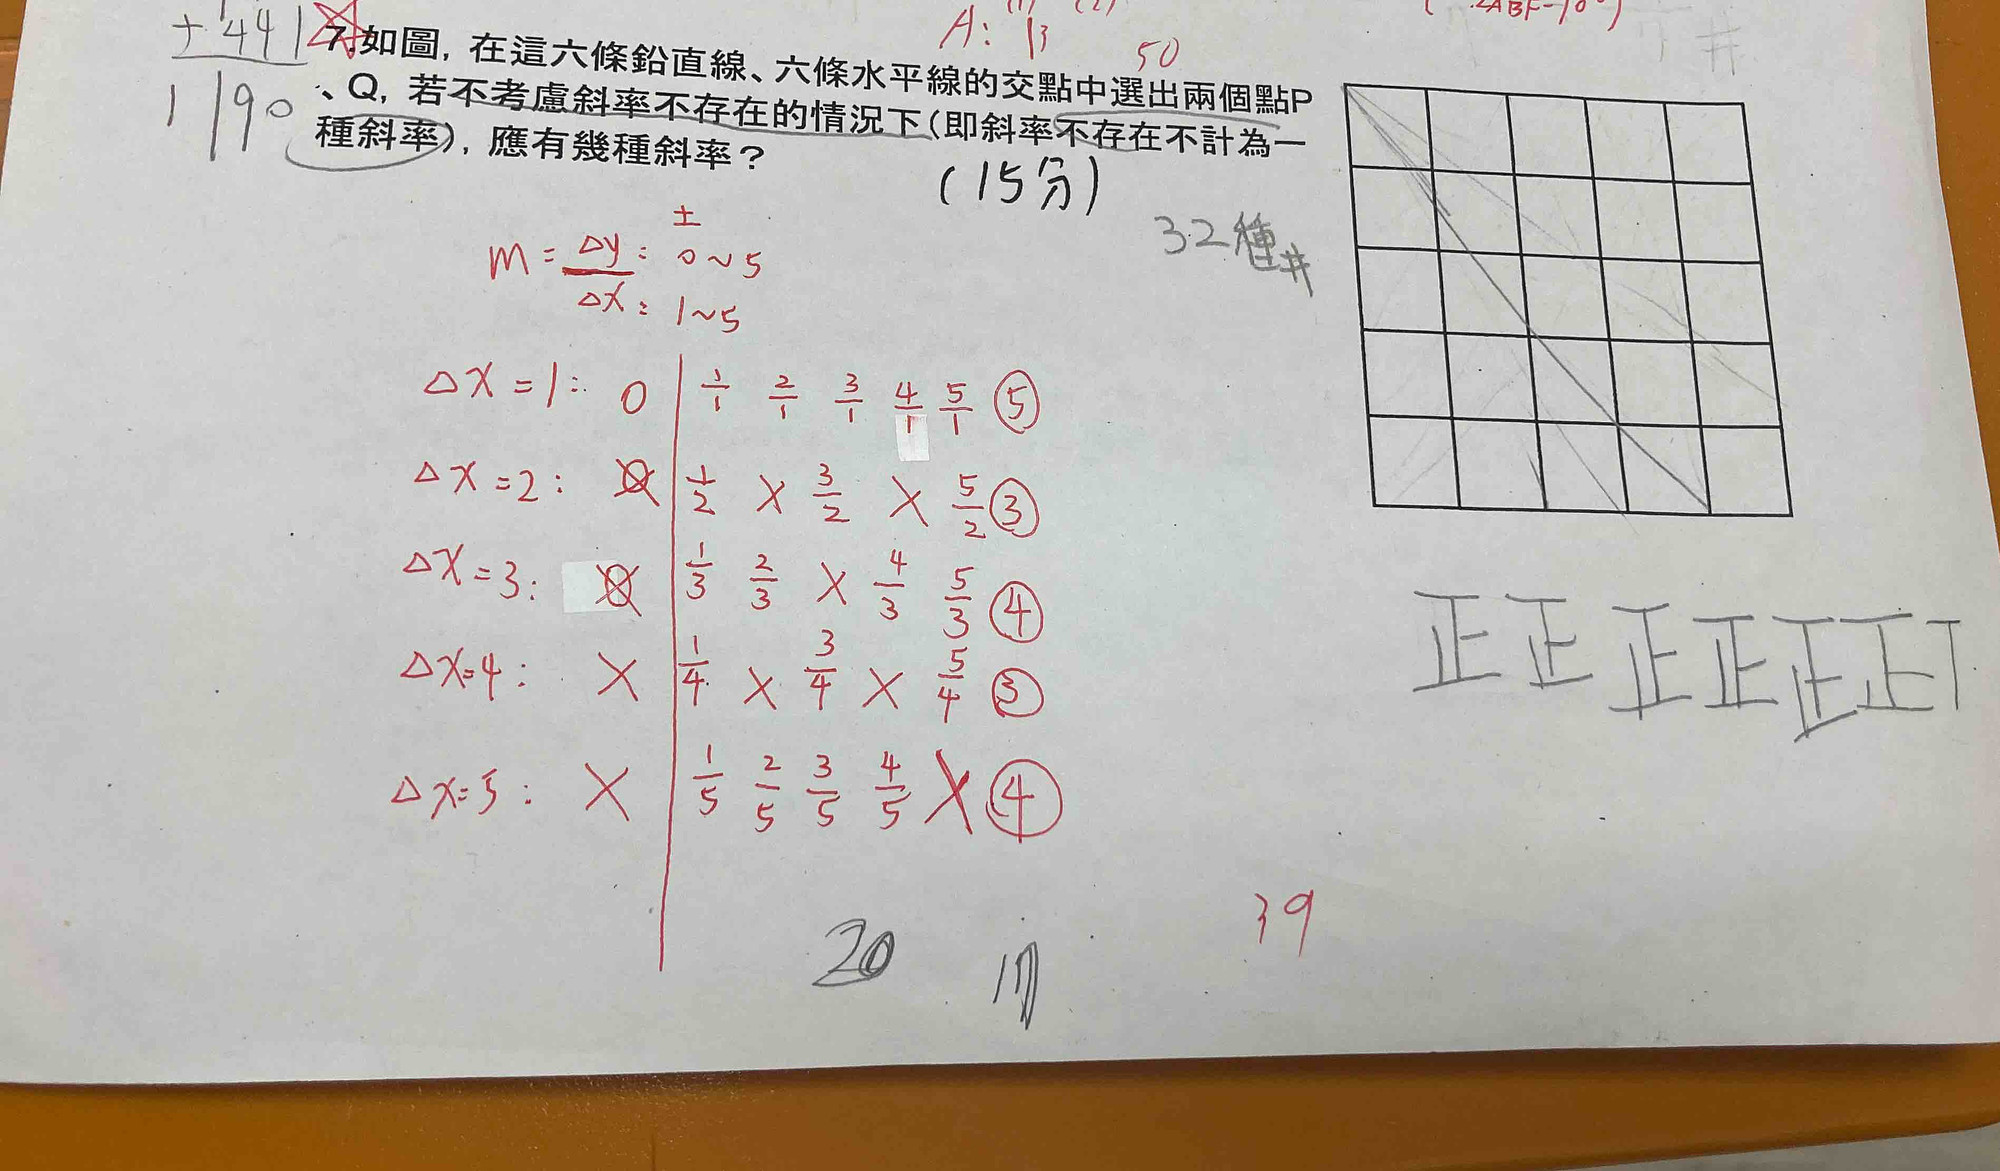 + 441
1190
A: 13
(1) (2)
50
7.如圖, 在這六條鉛直線、六條水平線的交點中選出兩個點P
、Q, 若不考慮斜率不存在的情況下(即斜率不存在不計為一
種斜率), 應有幾種斜率?
(15分)
32種#
±
m = Δy : 0~5
Δx : 1~5
Δx=1: 0 1/1 2/1 3/1 4/1 5/1 ⑤
Δx=2: 0 1/2 X 3/2 X 5/2 ③
Δx=3: 0 1/3 2/3 X 4/3 5/3 ④
Δx=4: X 1/4 X 3/4 X 5/4 ③
Δx=5: X 1/5 2/5 3/5 4/5 X ④
正正正正正正丅
39
20